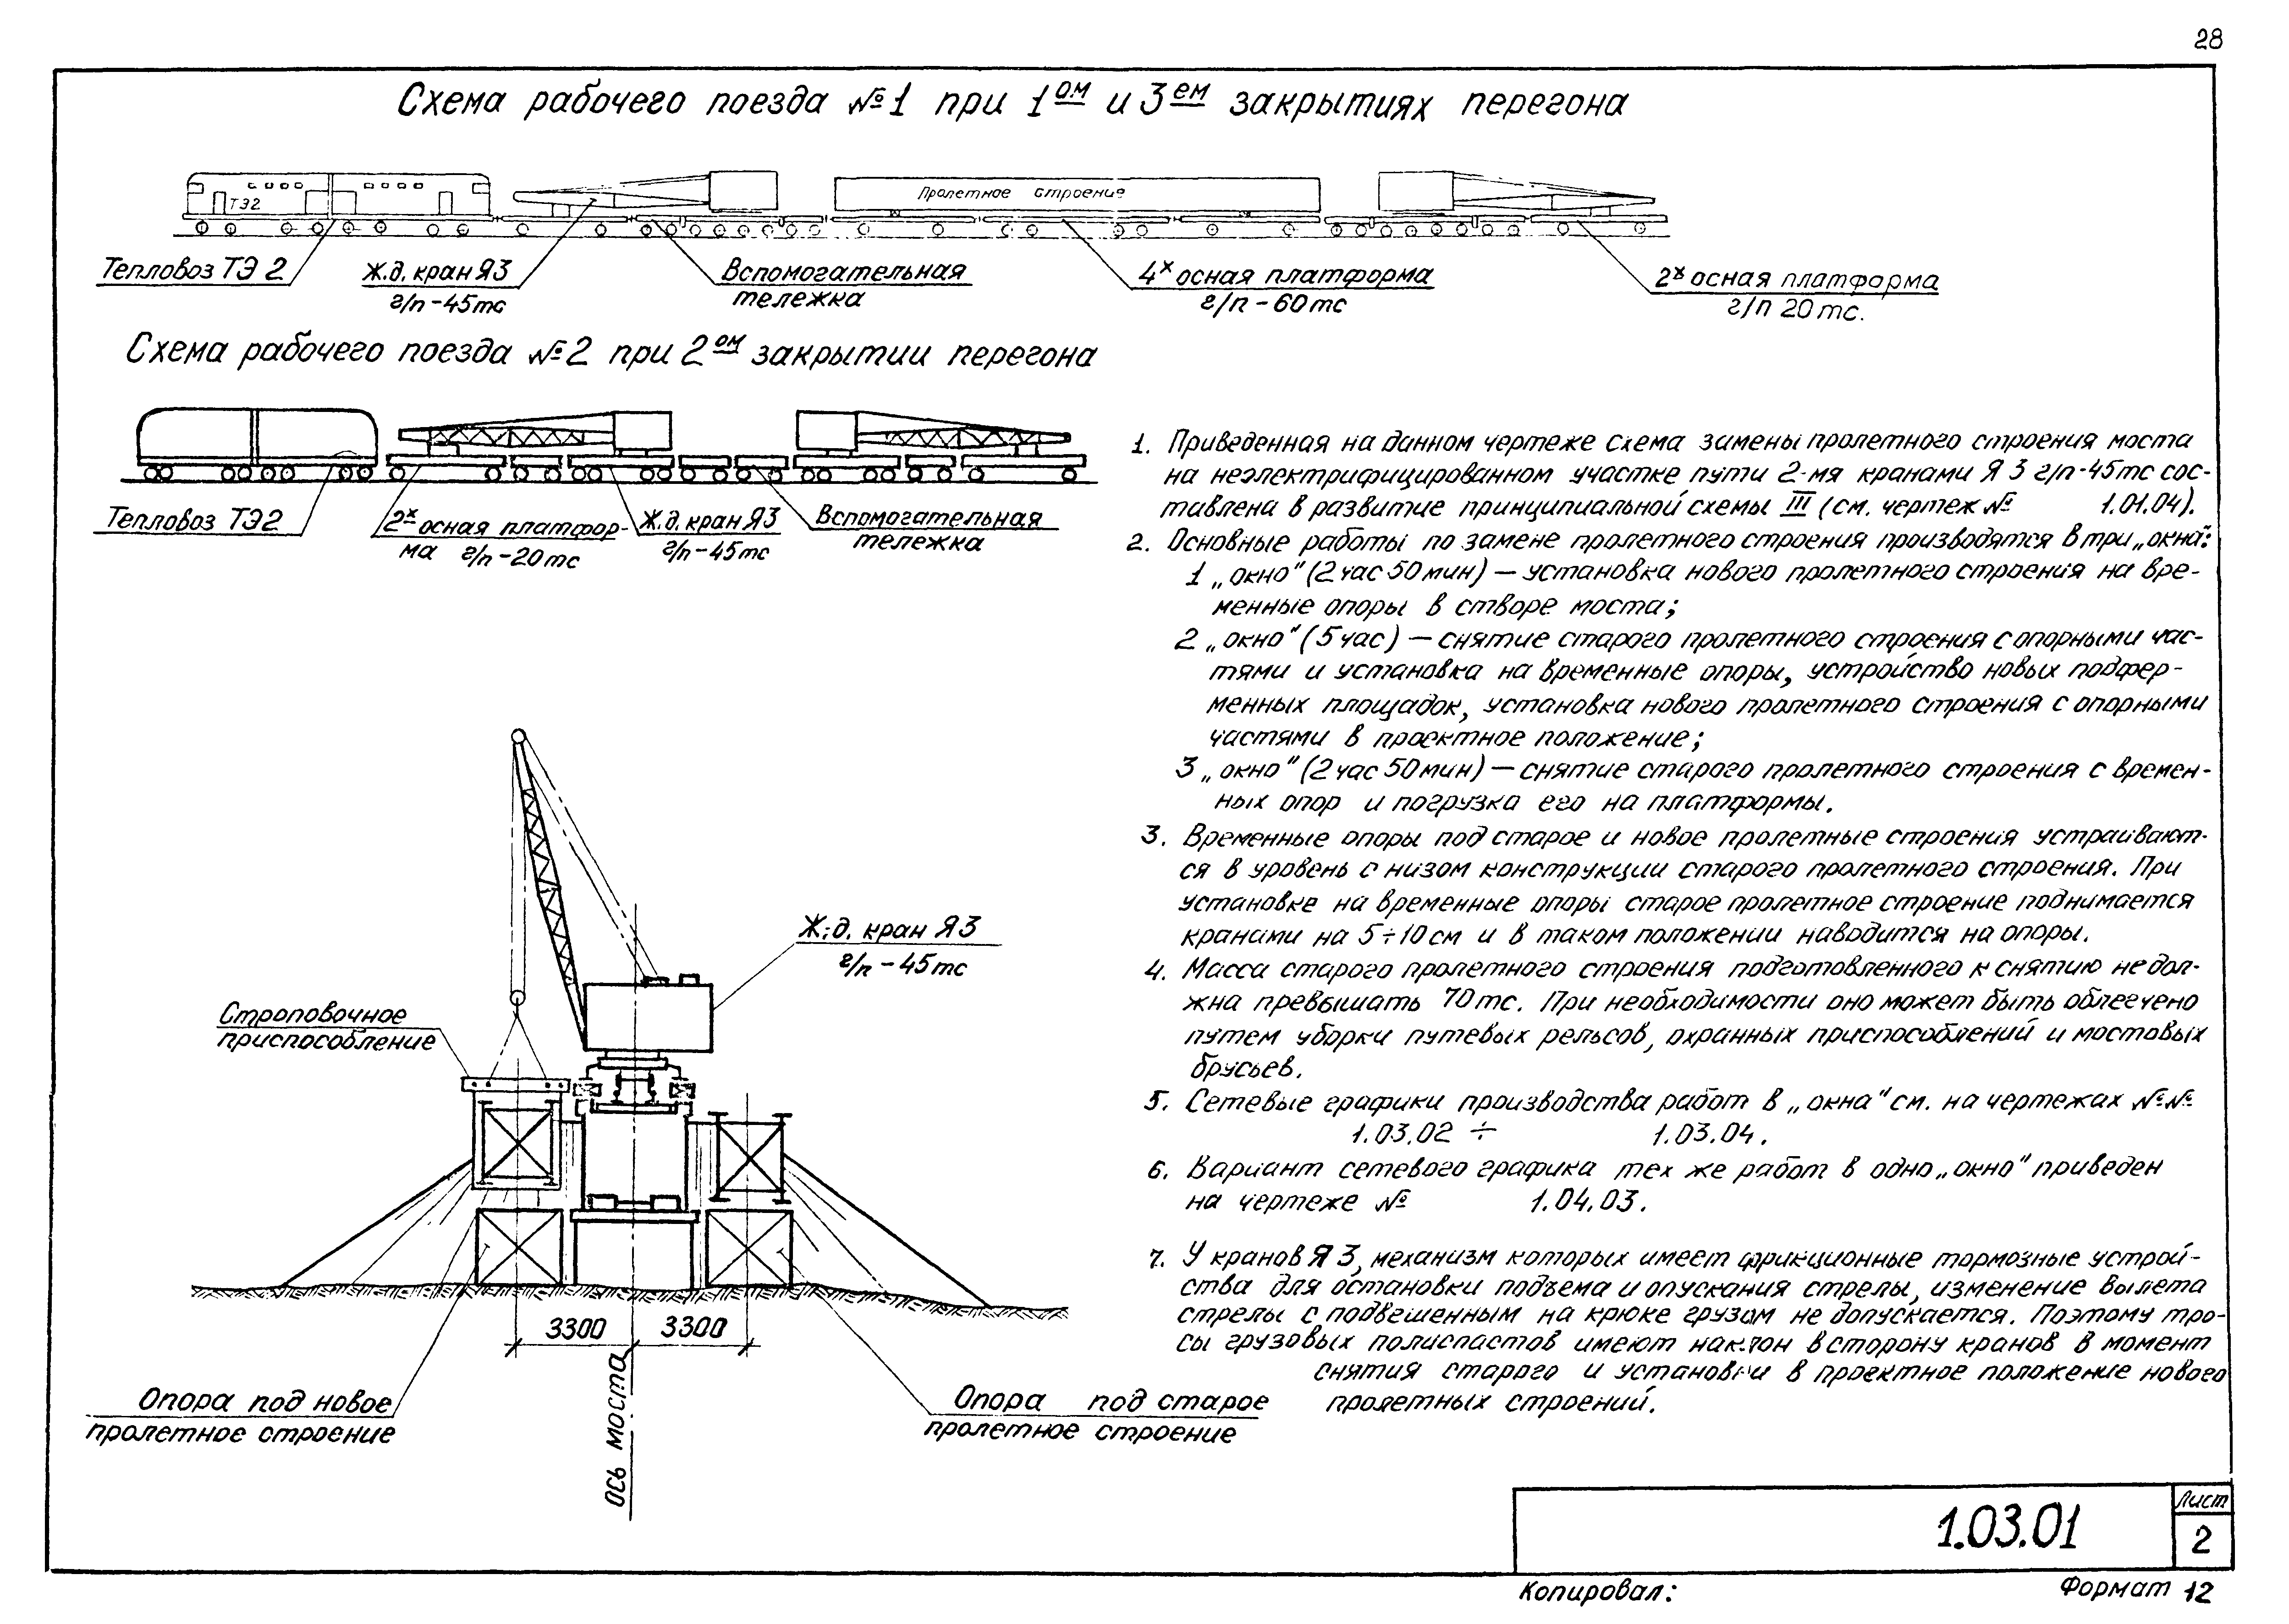 28
Схема рабочего поезда №1 при 1ом и 3ем закрытиях перегона
ТЭ2
Пролетное строение
Тепловоз ТЭ2
Ж.д. кран Я3
г/п-45тс
Вспомогательная
тележка
4х осная платформа
г/п-60тс
2х осная платформа
г/п 20тс.
Схема рабочего поезда №2 при 2ом закрытии перегона
Тепловоз ТЭ2
2х осная платфор-
ма г/п-20тс
Ж.д. кран Я3
г/п-45тс
Вспомогательная
тележка
1. Приведенная на данном чертеже схема замены пролетного строения моста
на неэлектрифицированном участке пути 2-мя кранами Я3 г/п-45тс сос-
тавлена в развитие принципиальной схемы III (см. чертеж № 1.01.04).
2. Основные работы по замене пролетного строения производятся в три „окна":
1 „окно" (2 час 50 мин) — установка нового пролетного строения на вре-
менные опоры в створе моста;
2 „окно" (5 час) — снятие старого пролетного строения с опорными час-
тями и установка на временные опоры, устройство новых подфер-
менных площадок, установка нового пролетного строения с опорными
частями в проектное положение;
3 „окно" (2 час 50 мин) — снятие старого пролетного строения с времен-
ных опор и погрузка его на платформы.
3. Временные опоры под старое и новое пролетные строения устраивают-
ся в уровень с низом конструкции старого пролетного строения. При
установке на временные опоры старое пролетное строение поднимается
кранами на 5÷10см и в таком положении наводится на опоры.
4. Масса старого пролетного строения подготовленного к снятию не дол-
жна превышать 70тс. При необходимости оно может быть облегчено
путем уборки путевых рельсов, охранных приспособлений и мостовых
брусьев.
5. Сетевые графики производства работ в „окна" см. на чертежах №№
1.03.02 ÷ 1.03.04.
6. Вариант сетевого графика тех же работ в одно „окно" приведен
на чертеже № 1.04.03.
7. У кранов Я3, механизм которых имеет фрикционные тормозные устрой-
ства для остановки подъема и опускания стрелы, изменение вылета
стрелы с подвешенным на крюке грузом не допускается. Поэтому тро-
сы грузовых полиспастов имеют наклон в сторону кранов в момент
снятия старого и установки в проектное положение нового
пролетных строений.
Ж.д. кран Я3
г/п-45тс
Строповочное
приспособление
3300
3300
Опора под новое
пролетное строение
ось моста
Опора под старое
пролетное строение
1.03.01
Лист
2
Копировал:
Формат 12